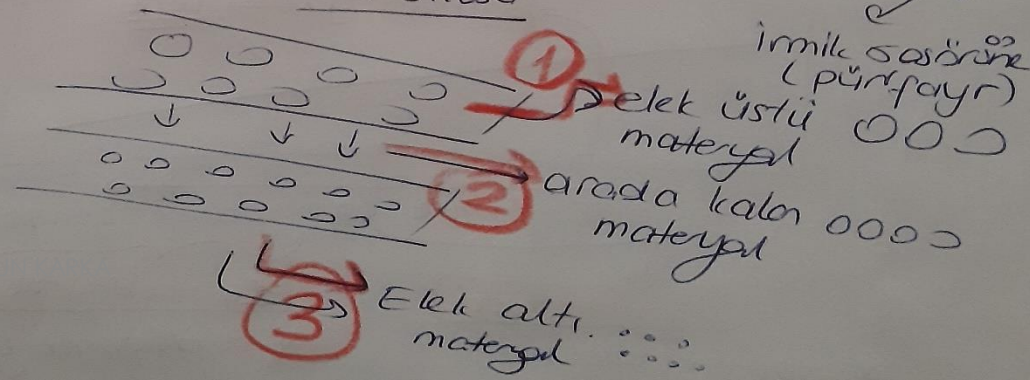 irmik sasörüne
(pürifayr)
1
elek üstü
materyal
2
arada kalan
materyal
3
Elek altı.
materyal